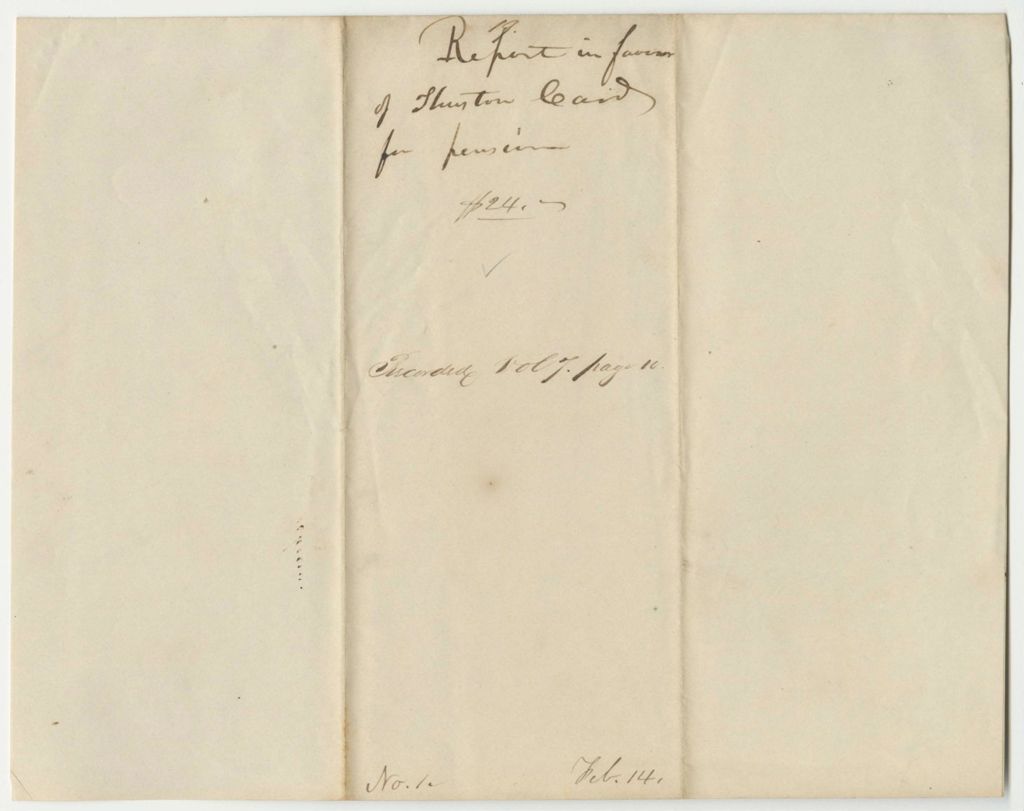 Report in favor
of Thurston Card
for pension
$24.
Recorded Vol 7. page 10.
No. 1.
Feb. 14.